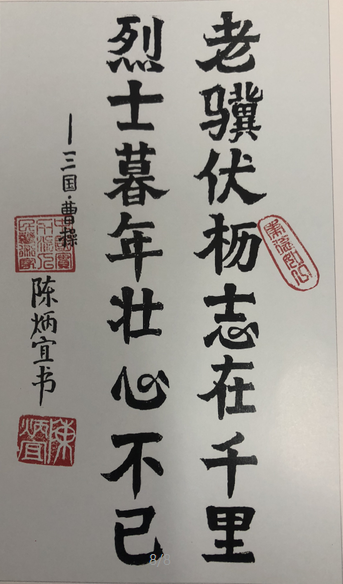 老骥伏枥志在千里
烈士暮年壮心不已
—三国·曹操
陈炳宜书
陈炳宜
8/8